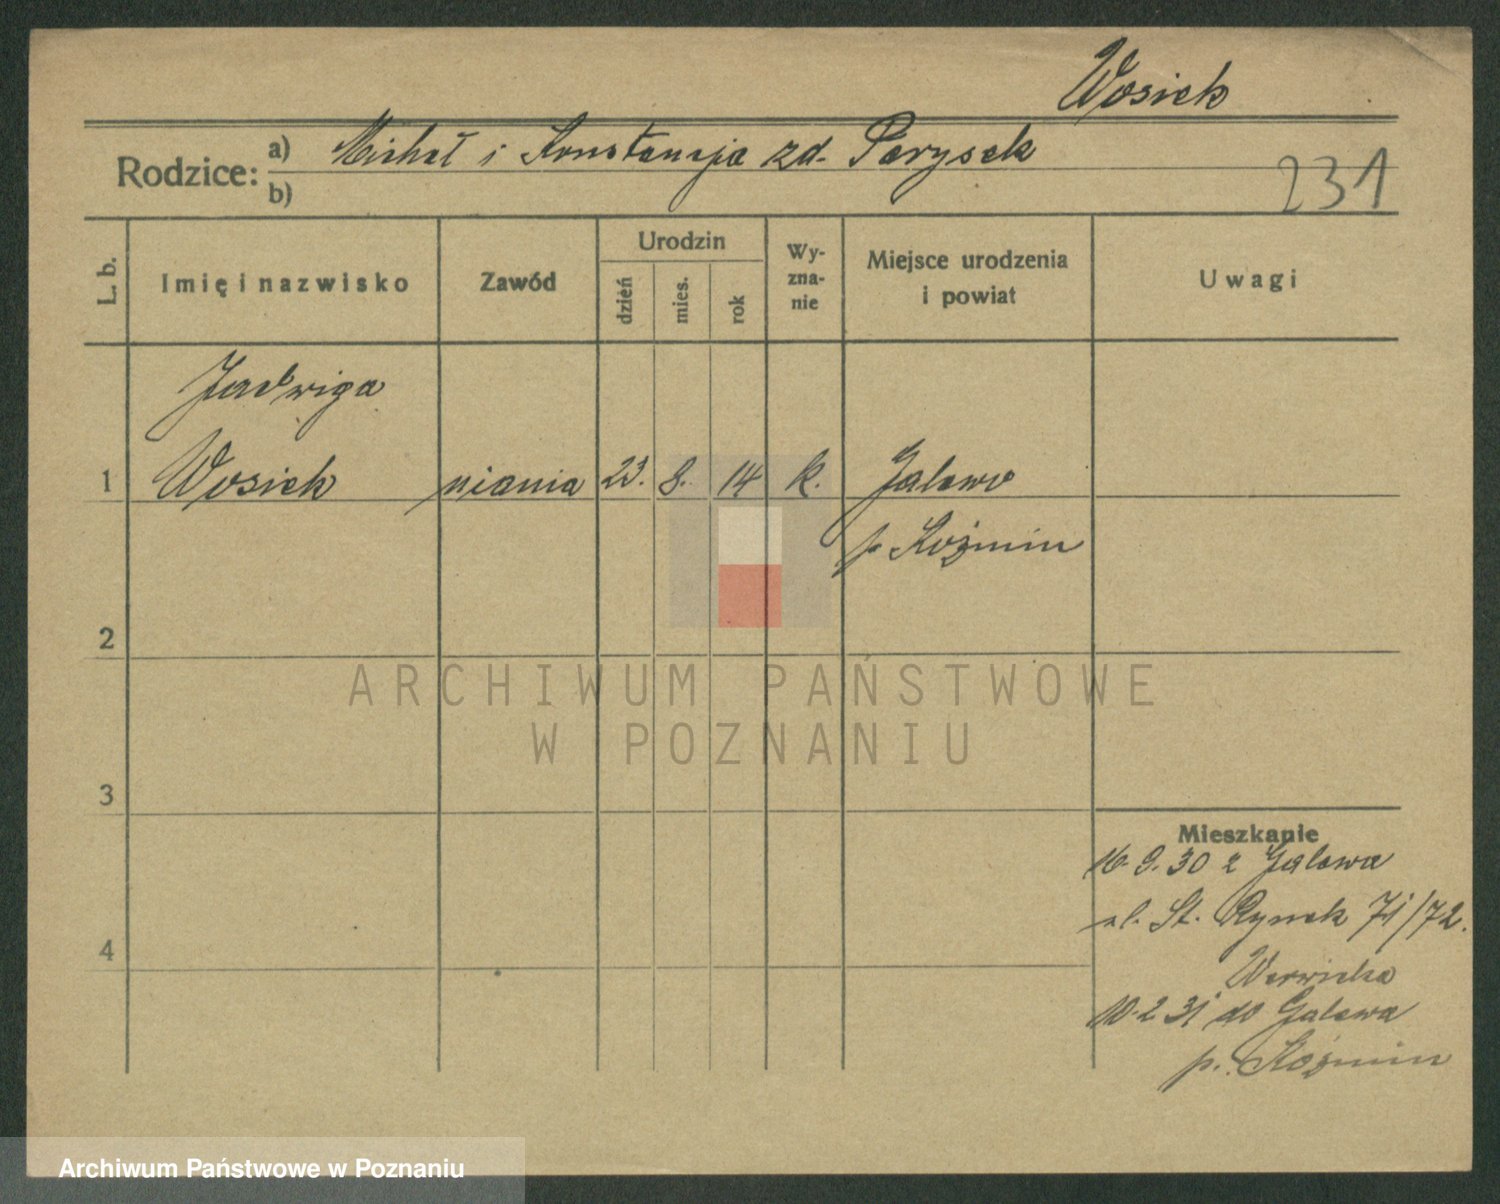 Wosiek
Rodzice: a) Michał i Konstancja zd. Parysek
b)
231
L. b.
Imię i nazwisko
Zawód
Urodzin
dzień
mies.
rok
Wy-
zna-
nie
Miejsce urodzenia
i powiat
Uwagi
Jadwiga
1 Wosiek niania 23. 8. 14 k. Galewo
p. Koźmin
2
3
4
Mieszkanie
16.9.30 z Galewa
ul. St. Rynek 71/72.
10.2 31 do Galewa
p. Koźmin
ARCHIWUM PAŃSTWOWE
W POZNANIU
Archiwum Państwowe w Poznaniu